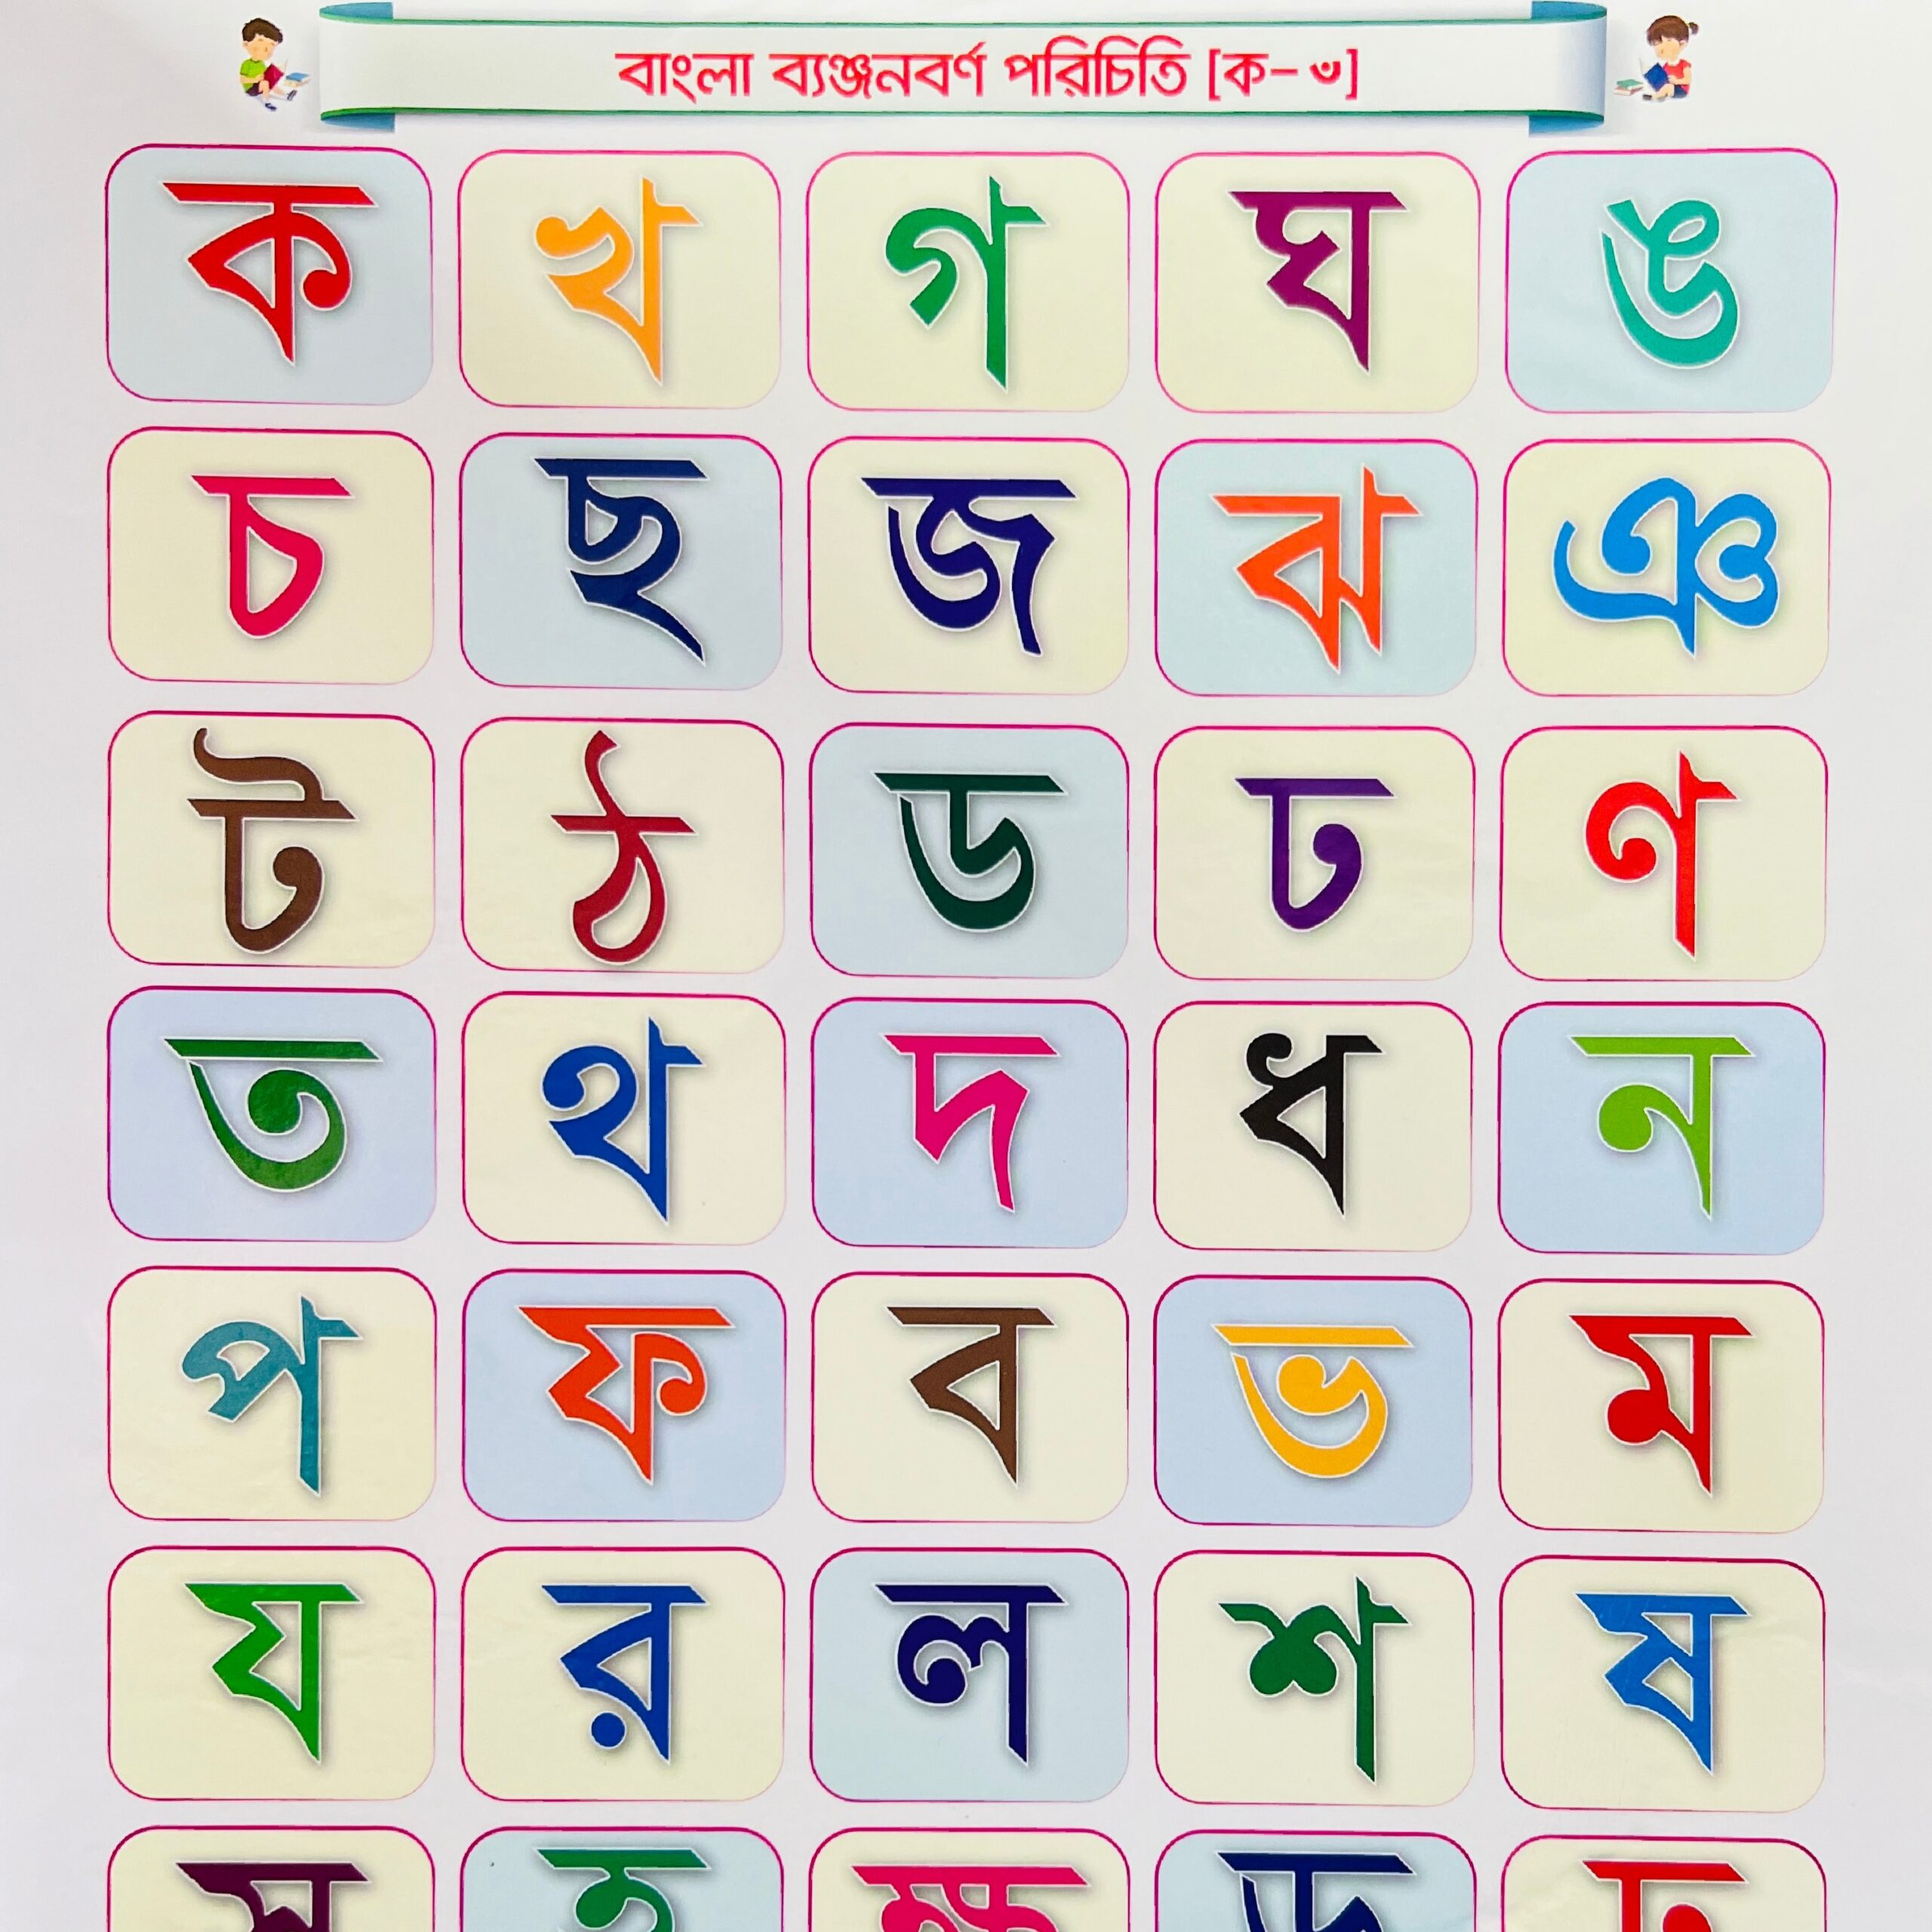 বাংলা ব্যঞ্জনবর্ণ পরিচিতি [ক– ঁ]
ক খ গ ঘ ঙ
চ ছ জ ঝ ঞ
ট ঠ ড ঢ ণ
ত থ দ ধ ন
প ফ ব ভ ম
য র ল শ ষ
স হ ক্ষ